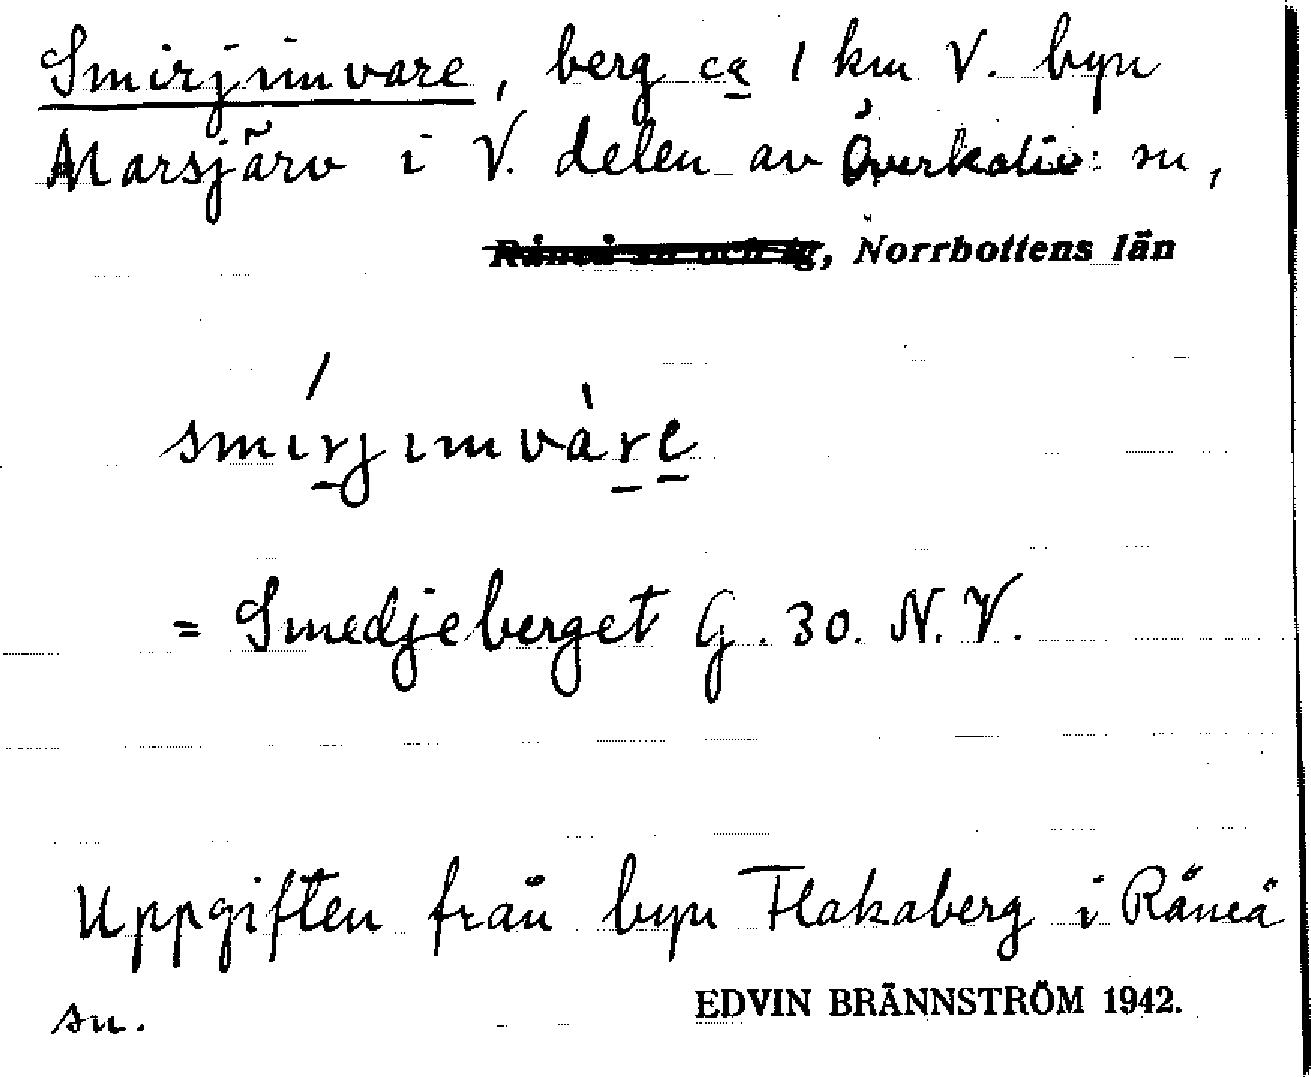 Smirjimvare, berg ca 1 km V. byn
Marsjärv i V. delen av Överkalix sn,
Råneå sn och tg, Norrbottens län
smírjimvàre
= Smedjeberget G. 30. N.V.
Uppgiften från byn Flakaberg i Råneå
sn.
EDVIN BRÄNNSTRÖM 1942.